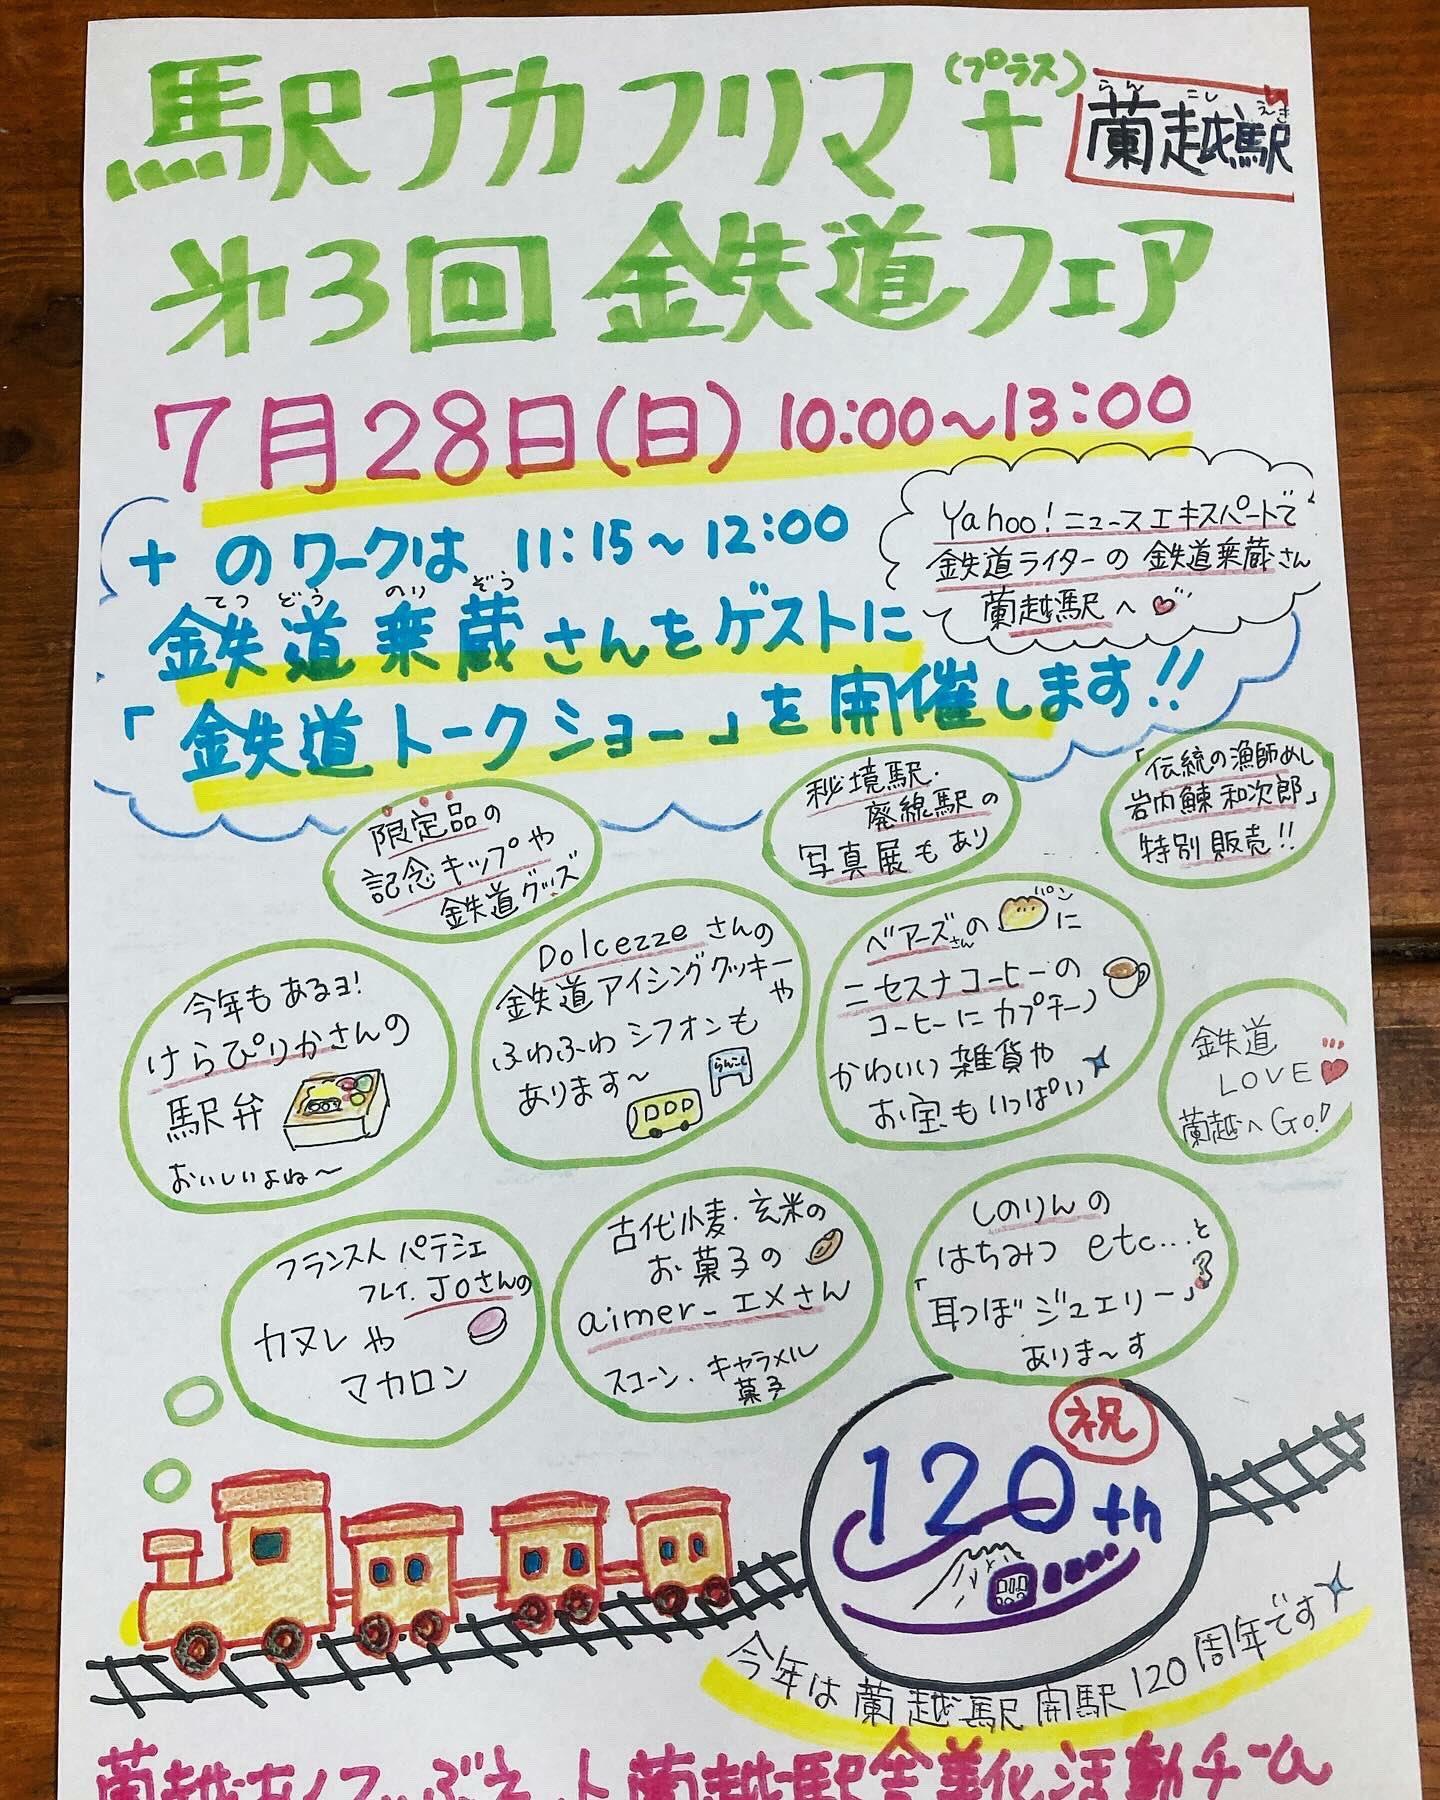 駅ナカフリマ+
(プラス)
らんこしえき
蘭越駅
第3回鉄道フェア
7月28日(日) 10:00~13:00
+のワークは 11:15~12:00
てつどうのりぞう
鉄道乗蔵さんをゲストに
「鉄道トークショー」を開催します!!
Yahoo!ニュースエキスパートで
鉄道ライターの鉄道乗蔵さん
蘭越駅へ♡
限定品の
記念キップや
鉄道グッズ
秘境駅・
廃線駅の
写真展もあり
「伝統の漁師めし
岩内鰊和次郎」
特別販売!!
今年もあるヨ!
けらぴりかさんの
駅弁
おいしいよね~
Dolcezzeさんの
鉄道アイシングクッキーや
ふわふわシフォンも
あります~
らんこし
ベアーズさんの
パン
に
ニセスナコーヒーの
コーヒーにカプチーノ
かわいい雑貨や
お宝もいっぱい
鉄道
LOVE
蘭越へGO!
フランス人パテシエ
フレイ.JOさんの
カヌレや
マカロン
古代小麦・玄米の
お菓子の
aimer-エメさん
スコーン、キャラメル
菓子
しのりんの
はちみつ etc...と
「耳つぼジュエリー」
ありま~す
祝
120th
今年は蘭越駅開駅120周年です
蘭越駅舎美化活動チーム